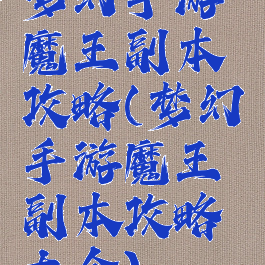 梦幻手游
魔王副本
攻略(梦幻
手游魔王
副本攻略
大全)